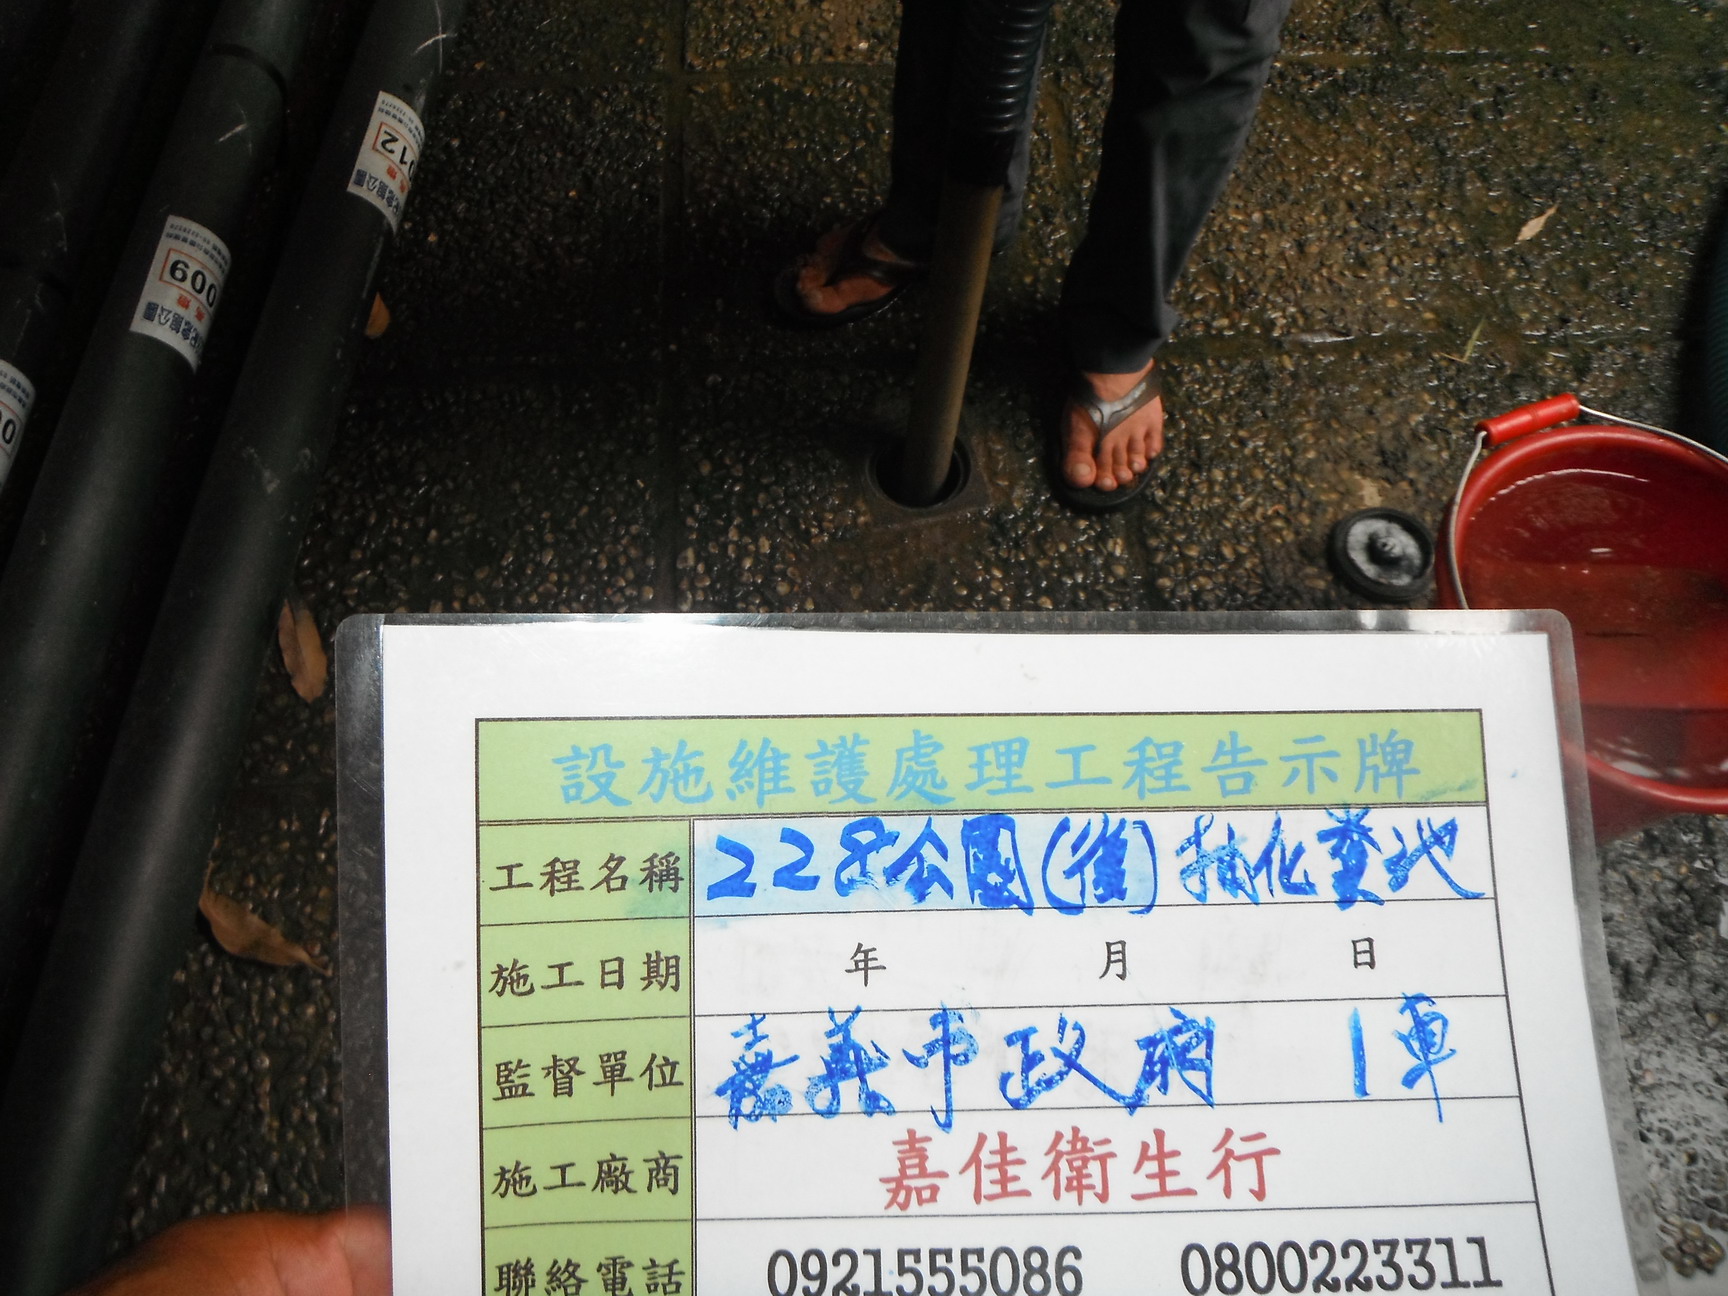 012
009
00
設施維護處理工程告示牌
工程名稱 228公園(後)抽化糞池
施工日期 年 月 日
監督單位 嘉義市政府 1車
施工廠商 嘉佳衛生行
聯絡電話 0921555086 0800223311